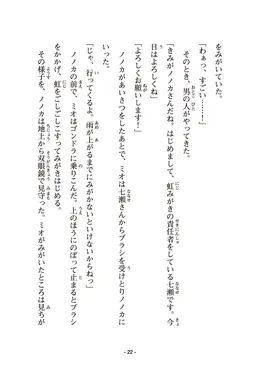 をみがいていた。
「わぁっ、すごい……！」
そのとき、男の人がやってきた。
「きみがノノカさんだね。はじめまして、虹みがきの責任者をしている七瀬です。今
日はよろしくね」
「よろしくお願いします！」
ノノカがあいさつをしたあとで、ミオは七瀬さんからブラシを受けとりノノカに
いった。
「じゃ、行ってくるよ。雨が上がるまでにみがかないといけないからねっ」
ノノカの前で、ミオはゴンドラに乗りこんだ。上のほうにのぼって止まるとブラシ
をかかげ、虹をごしごしこすってみがきはじめる。
その様子を、ノノカは地上から双眼鏡で見守った。ミオがみがいたところは見ちが
- 22 -